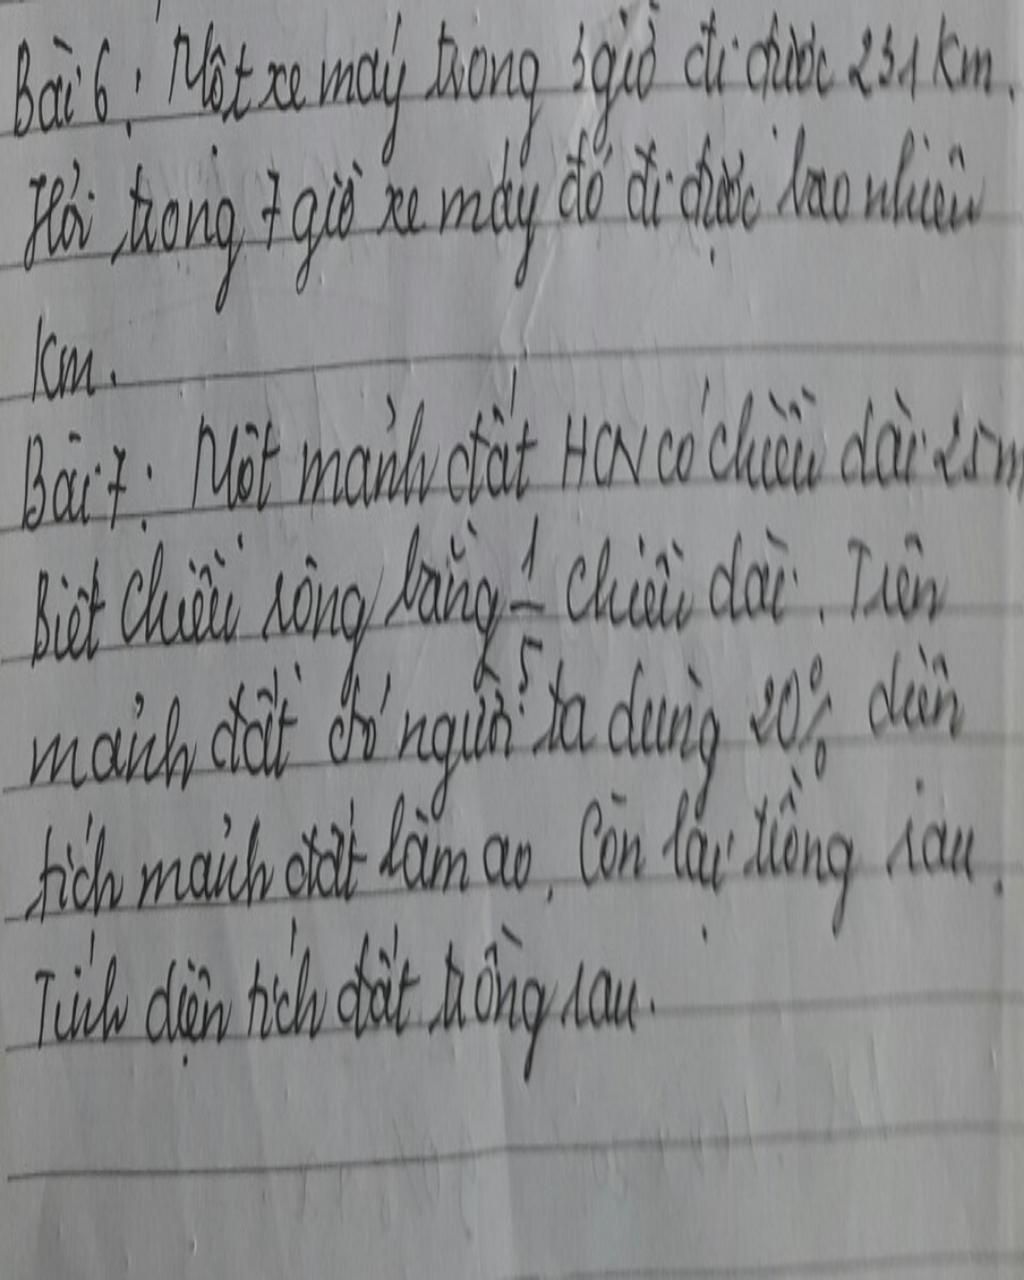 Bài 6: Một xe máy trong 3 giờ đi được 231 km.
Hỏi trong 7 giờ xe máy đó đi được bao nhiêu
km.
Bài 7: Một mảnh đất HCN có chiều dài 25m
Biết chiều rộng bằng 1/5 chiều dài. Trên
mảnh đất đó người ta dùng 20% diện
tích mảnh đất làm ao. Còn lại trồng rau.
Tính diện tích đất trồng rau.